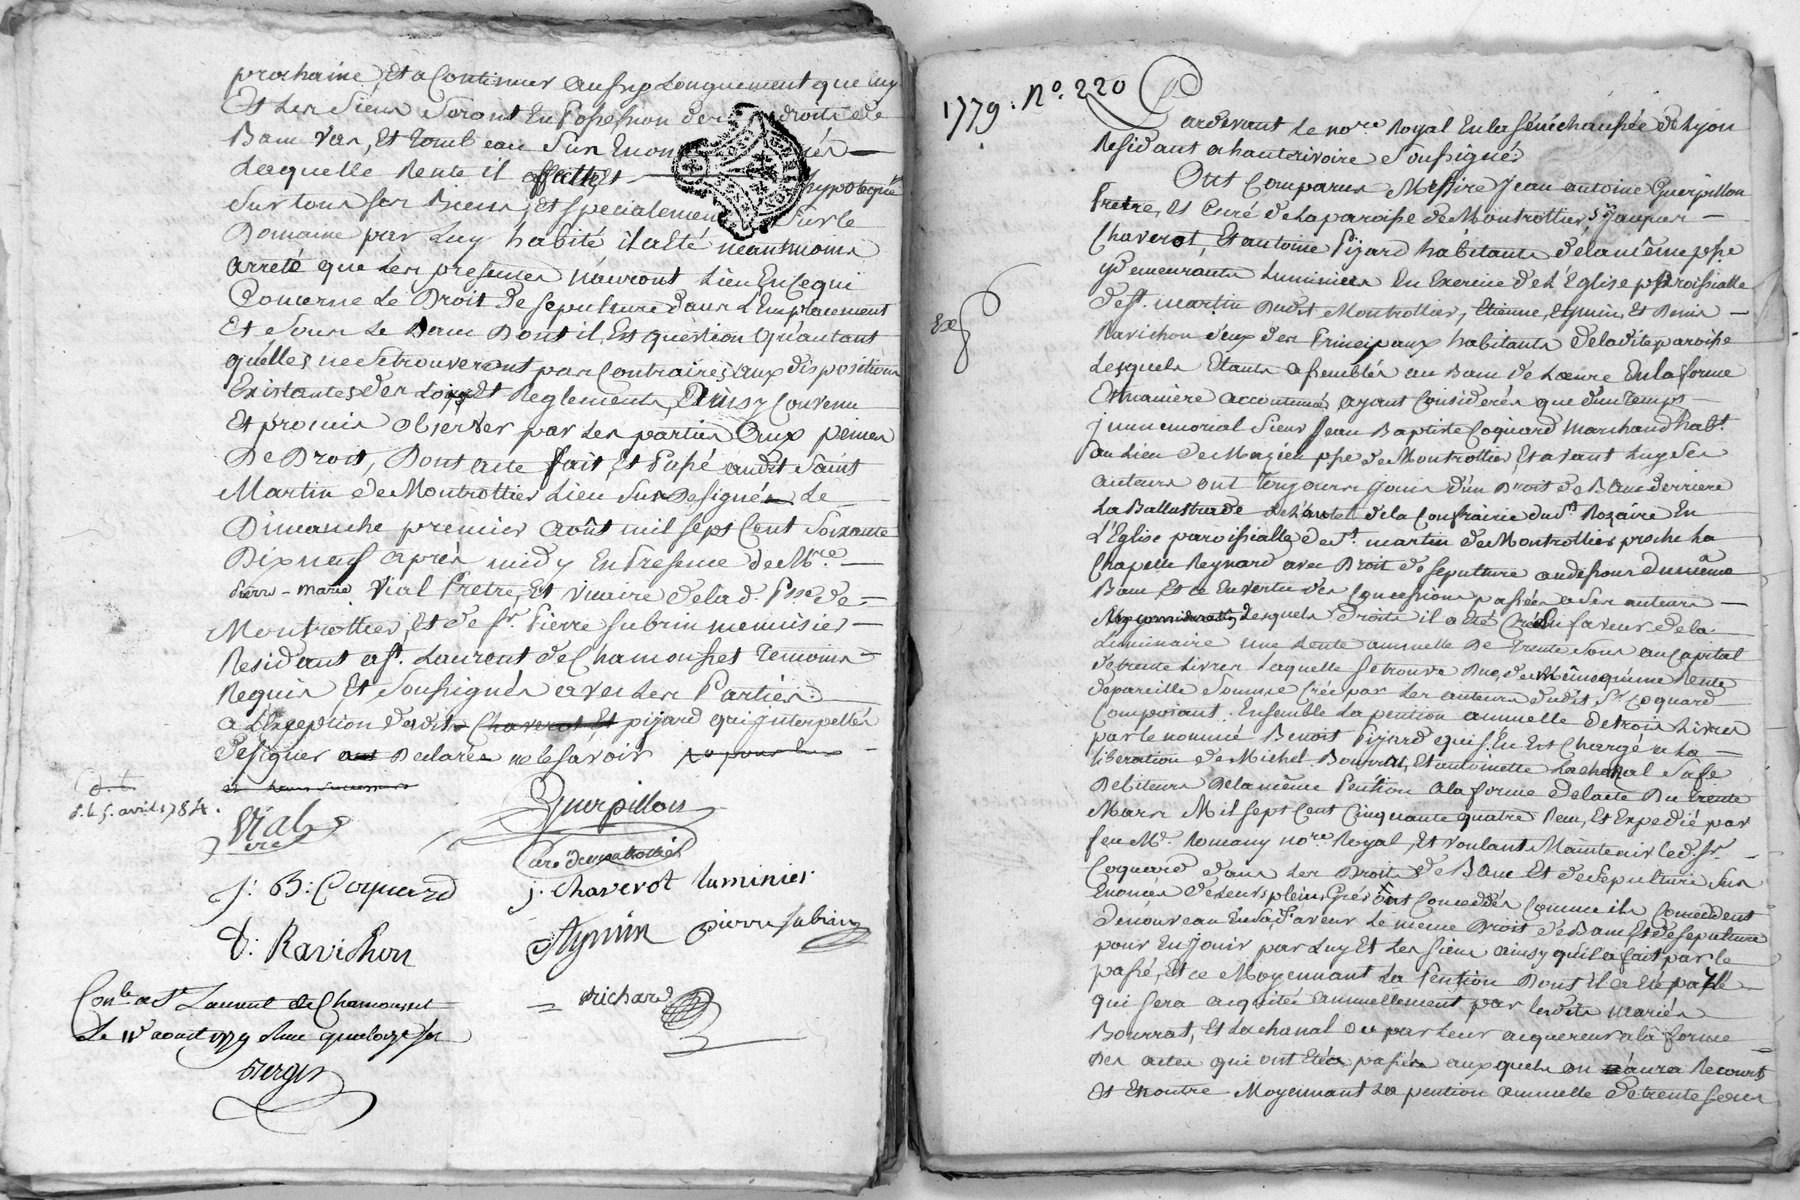 prochaine, Et a Continuer aussy Longuement que luy
Et Les Siens Seront En Possession des droits de
Banc Vas, Et tombeau Sus Enoncés
Laquelle Rente il affecte hypoteque
Sur tous ses Biens, Et specialement Sur le
Domaine par Luy habité il a Eté neantmoins
arreté que Les presentes n'auront Lieu En Ce qui
Concerne Le Droit de sepulture dans L'Emplacement
Et Sous Le Banc Dont il Est question Qu'autant
qu'elles ne se trouveront pas Contraires aux dispositions
Existantes des Loix Et Reglements, Ainsy Convenu
Et promis observer par Les parties Aux peines
De Droit, Dont acte fait, Et Passé audit Saint
Martin de Montrottier Lieu Sus Designé Le
Dimanche premier Août mil sept Cent Soixante
Dix neuf après midy En Presence de M.re
Pierre-marie Vial Pretre, Et Vicaire de lad. Psse de
Montrottier, Et de Sr. Pierre Subrin menuisier
Residant a St. Laurent de Chamousset Temoins
Requis Et Soussignés avec Les Parties
a L'Exception dudit Chaverot Et pijard qui Interpellés
de signer Declarés ne le savoir
d. L. 5. avril 1784.
Vial
vre
Guerpillon
Curé de montrottier
J: B: Coquard
j. Chaverot luminier
D: Ravichon
Aymin pierre subrin
Richard
Con.lé a St Laurent de Chamousset
Le 11e aout 1779 Reçu quatorze sols
Berger
1779: No. 220
Pardevant Le no.re Royal En la sénéchaussée de Lyon
Residant a hauterivoire Soussigné
Ont Comparus Messire Jean antoine Guerpillon
Pretre, Et Curé de la paroisse de Montrottier, Sr. Jaques
Chaverot, Et antoine Pijard habitants de la même psse
y demeurants Luminiers En Exercice de L'Eglise parroissialle
de St. Martin Dudit Montrottier, Etienne Aymin, Et Denis
Ravichon deux des Principaux habitants de la dite paroisse
Lesquels Etants assemblés au Banc de L'oeuvre En la forme
Et maniere accoutumée ayant Considerés que d'un temps
jmmemorial Sieur Jean Baptiste Coquard Marchand hab.t
au Lieu de Magieu psse de Montrottier, Et avant Luy Ses
auteurs ont toujours Jouis d'un Droit de Banc derriere
La Ballustrade de L'autel de la Confrairie du St. Rozaire En
L'Eglise paroissialle de St. martin de Montrottier proche La
Chapelle Reynard avec Droit de sepulture au dessous Du même
Banc Et ce En vertu des Concessions passées a Ses auteurs
Lesquels Droits il a été Créé En faveur de la
Luminaire une Rente annuelle De trente Sous au Capital
de trente Livres Laquelle se trouve
de pareille Somme Crée par Les auteurs dudit Sr. Coquard
Composant Ensemble La pention annuelle de trois Livres
par le nommé Benoit Pijard qui s'En Est Chargé a La
liberation de Michel Bourrat, Et antoinette Lachanal Sa fe
Debiteurs De la même Pention a la forme de l'acte Du trente
Mars Mil sept Cent Cinquante quatre Reçu, Et Expedié par
feu Me. Romany no.re Royal, Et voulant Maintenir led. Sr.
Coquard dans Les Droits de Banc Et de sepulture Sus
Enoncés de Leurs plein Grés ont Concedés Comme ils Concedent
De nouveau En sa faveur Le meme Droit de Banc Et de sepulture
pour En Jouir par Luy Et Les Siens ainsy qu'il a fait par le
passé, Et ce Moyennant La Pention Dont il a été parlé
qui sera acquitée annuellement par lesdits mariés
Bourrat, Et Lachanal ou par Leur acquereur a la forme
Des actes qui ont Etés passés auxquels on aura Recours
Et En outre Moyennant La pention annuelle de trente sous